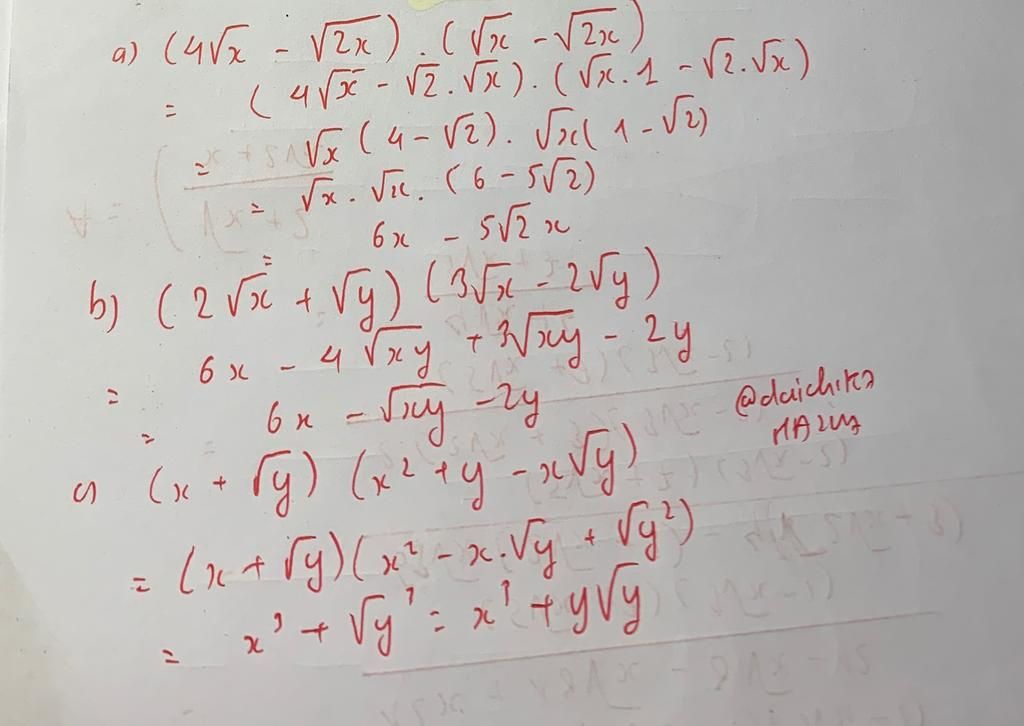 a) (4√x - √2x) . (√x - √2x)
= (4√x - √2.√x) . (√x.1 - √2.√x)
= √x (4 - √2) . √x (1 - √2)
= √x . √x . (6 - 5√2)
= 6x - 5√2 x
b) (2√x + √y) (3√x - 2√y)
= 6x - 4√xy + 3√xy - 2y
= 6x - √xy - 2y
c) (x + √y) (x² + y - x√y)
= (x + √y) (x² - x.√y + √y²)
= x³ + √y³ = x³ + y√y